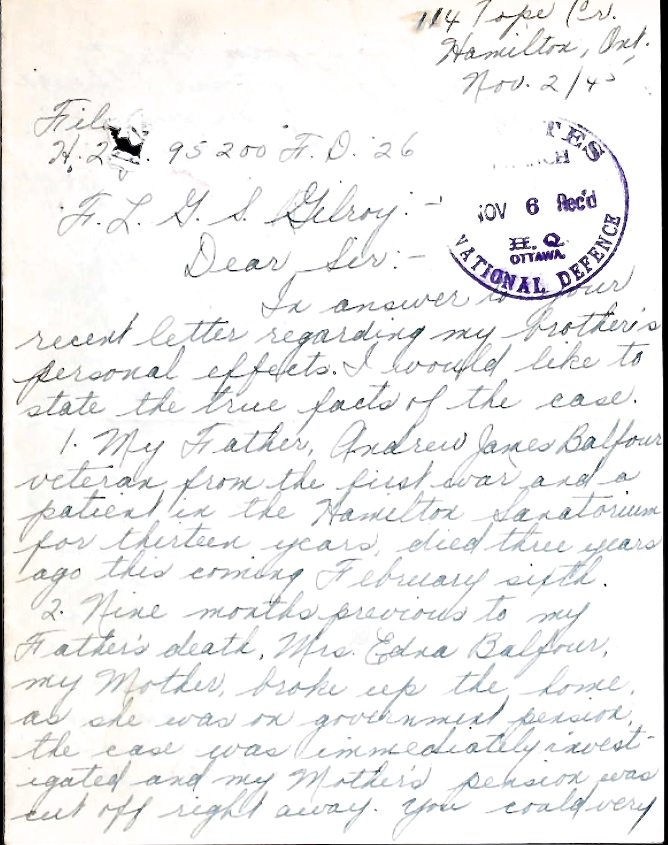 114 Tope Cr.
Hamilton, Ont.
Nov. 2/45
File
H.Q. 95200 F.D. 26
F. L. G. S. Gilroy: -
TES
NOV 6 Rec'd
H.Q.
OTTAWA
NATIONAL DEFENCE
Dear Sir: -
In answer to your
recent letter regarding my brother's
personal effects. I would like to
state the true facts of the case.
1. My Father, Andrew James Balfour
veteran from the first war and a
patient in the Hamilton Sanatorium
for thirteen years, died three years
ago this coming February sixth.
2. Nine months previous to my
Father's death, Mrs. Edna Balfour,
my Mother, broke up the home,
as she was on government pension,
the case was immediately invest-
igated and my Mother's pension was
cut off right away. You could very